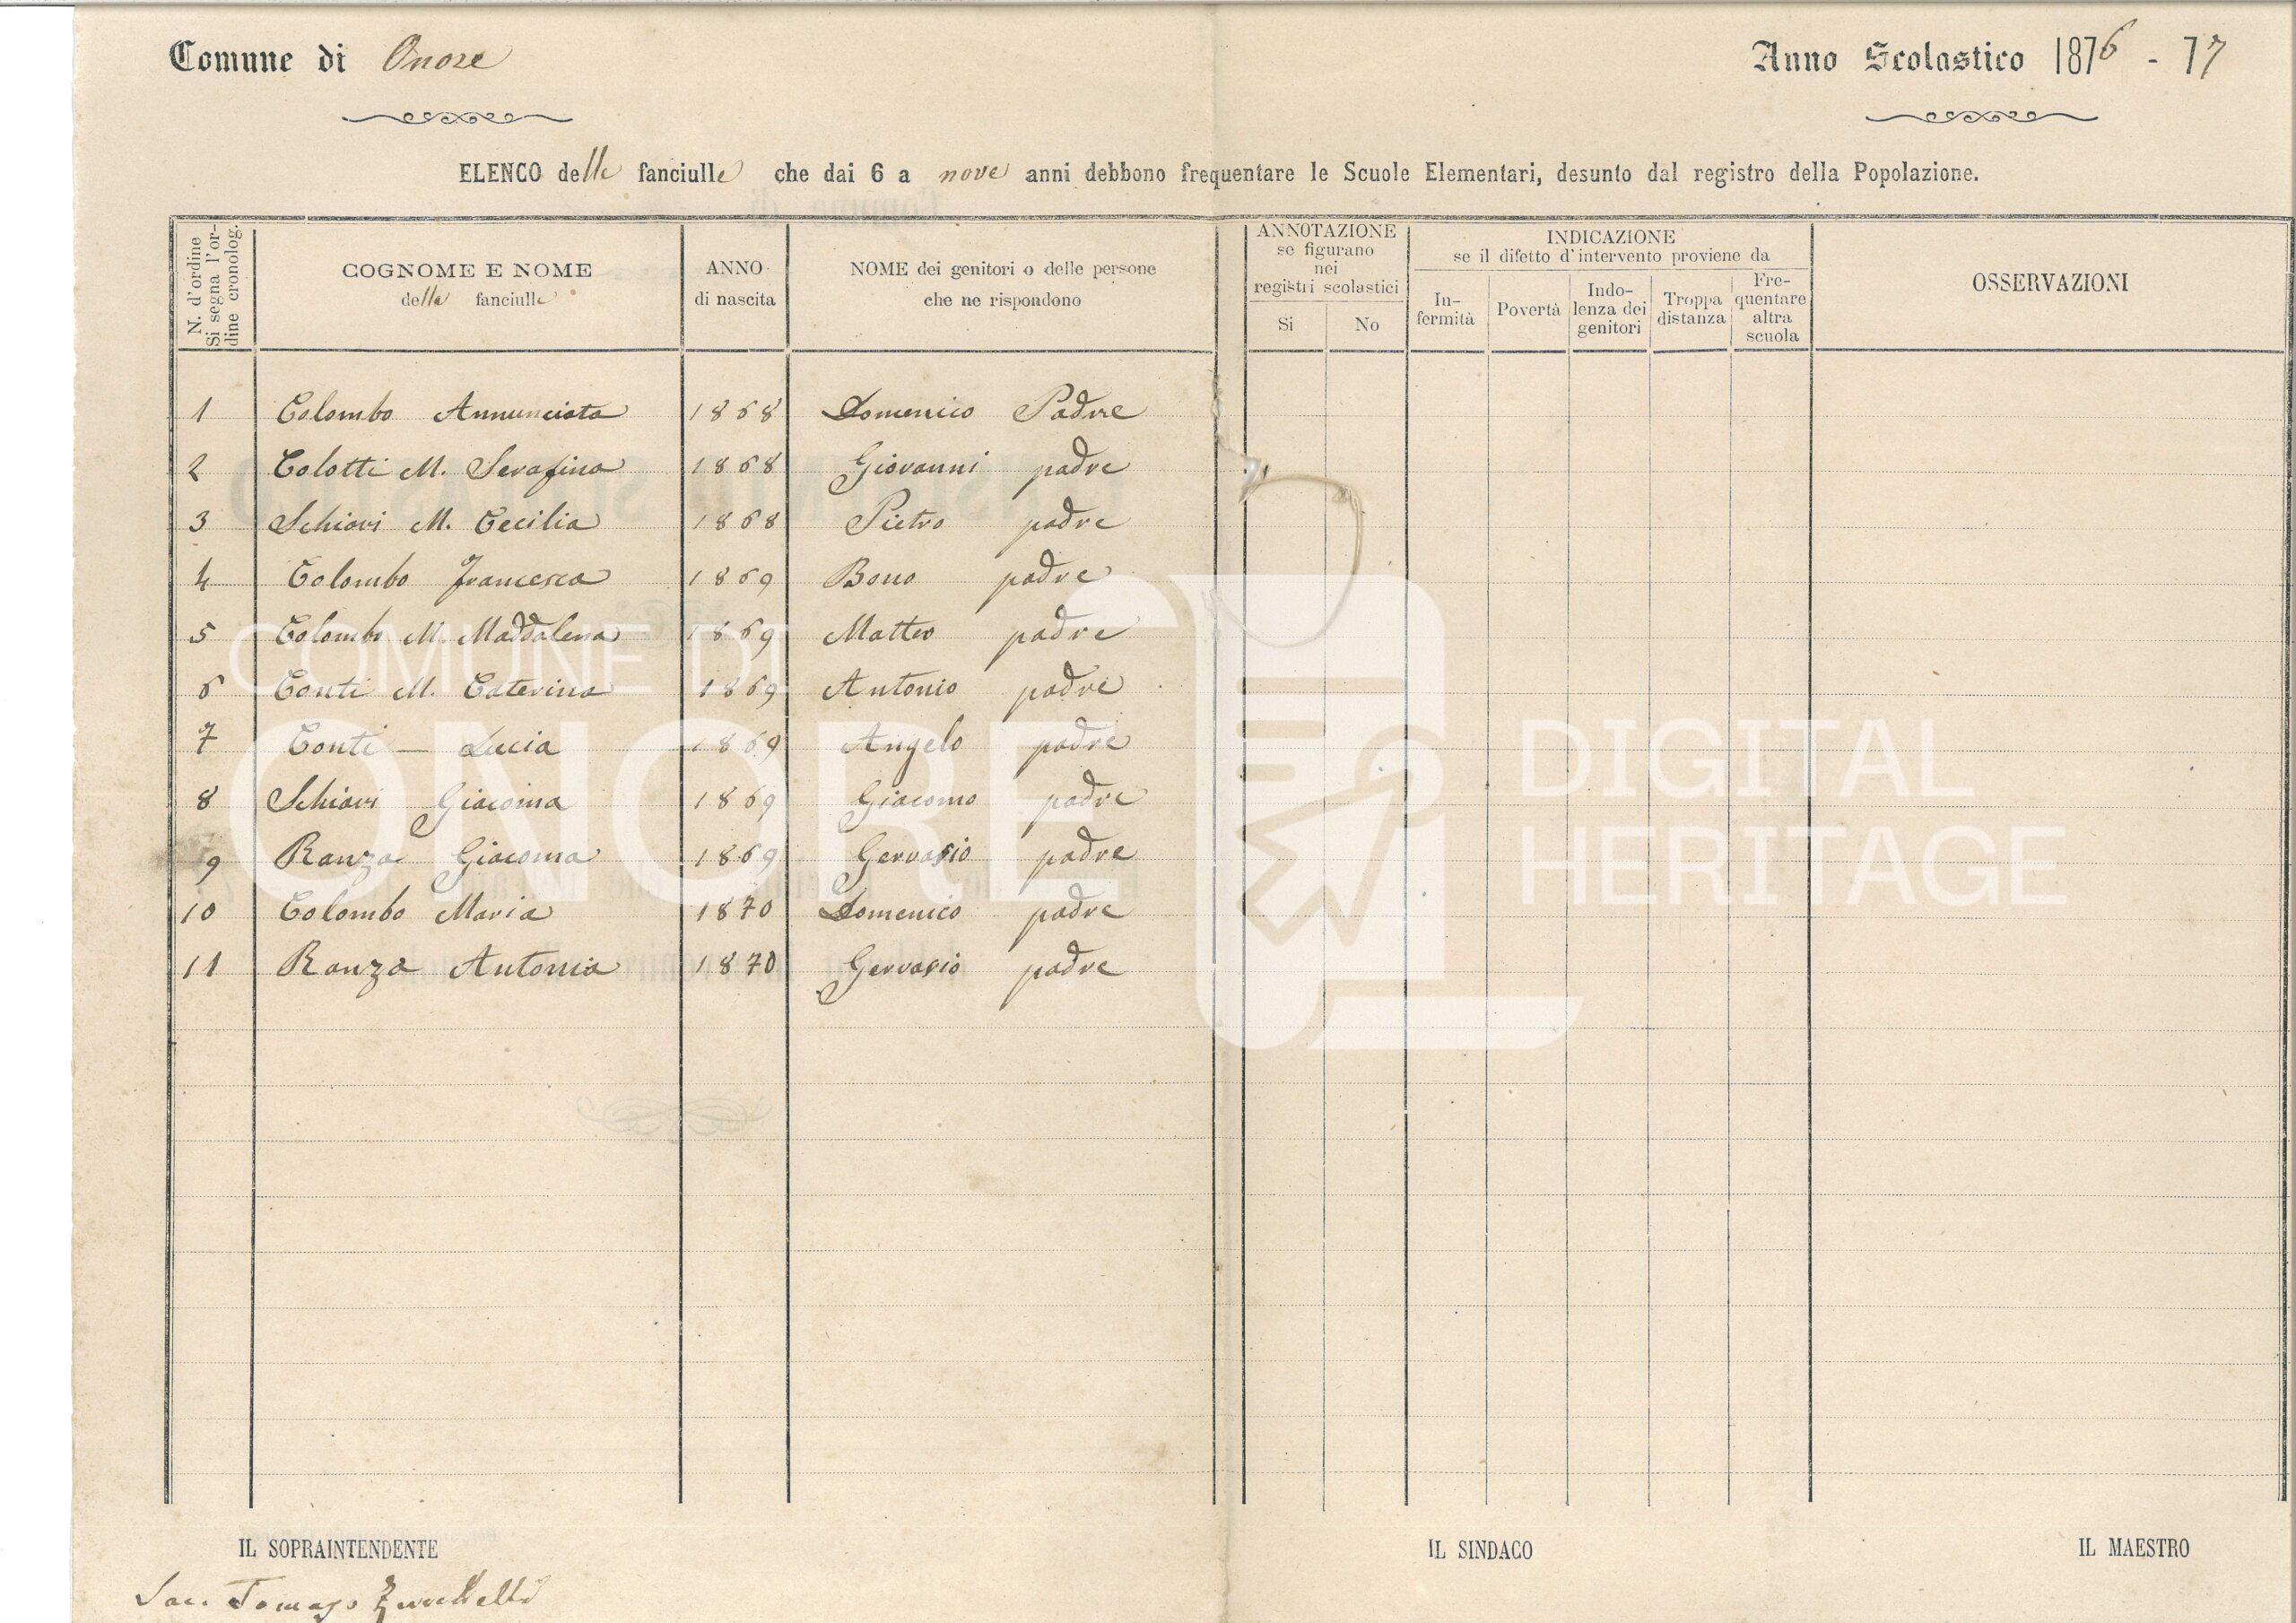 Comune di Onore
Anno Scolastico 1876 - 77
ELENCO delle fanciulle che dai 6 a nove anni debbono frequentare le Scuole Elementari, desunto dal registro della Popolazione.
N. d'ordine
Si segna l'or-
dine cronolog.
COGNOME E NOME
delle fanciulle
ANNO
di nascita
NOME dei genitori o delle persone
che ne rispondono
ANNOTAZIONE
se figurano
nei
registri scolastici
Si No
INDICAZIONE
se il difetto d'intervento proviene da
In-
fermità
Povertà
Indo-
lenza dei
genitori
Troppa
distanza
Fre-
quentare
altra
scuola
OSSERVAZIONI
1 Colombo Annunciata 1868 Domenico Padre
2 Colotti M. Serafina 1868 Giovanni padre
3 Schiavi M. Cecilia 1868 Pietro padre
4 Colombo Francesca 1869 Bono padre
5 Colombo M. Maddalena 1869 Matteo padre
6 Conti M. Caterina 1869 Antonio padre
7 Conti — Lucia 1869 Angelo padre
8 Schiavi Giacoma 1869 Giacomo padre
9 Ranza Giacoma 1869 Gervasio padre
10 Colombo Maria 1870 Domenico padre
11 Ranza Antonia 1870 Gervasio padre
COMUNE DI
ONORE
DIGITAL
HERITAGE
IL SOPRAINTENDENTE
IL SINDACO
IL MAESTRO
Sac. Tomaso